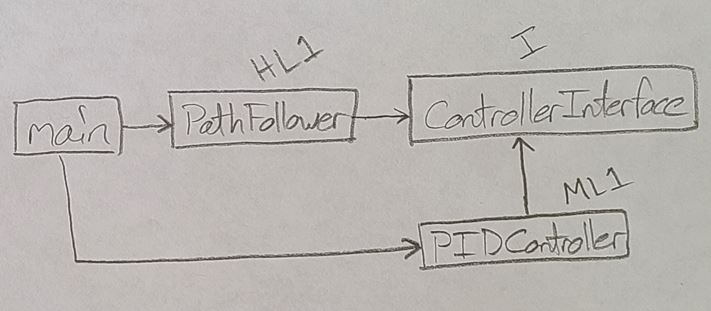 HL1
I
main
PathFollower
ControllerInterface
ML1
PIDController